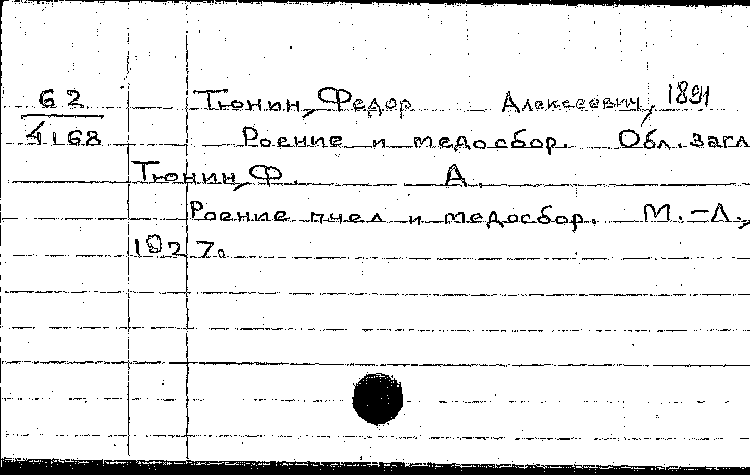 62
4168
Тюнин, Федор Алексеевич, 1891
Роение и медосбор. Обл. загл
Тюнин, Ф. А.
Роение пчел и медосбор. М.-Л.,
1927.